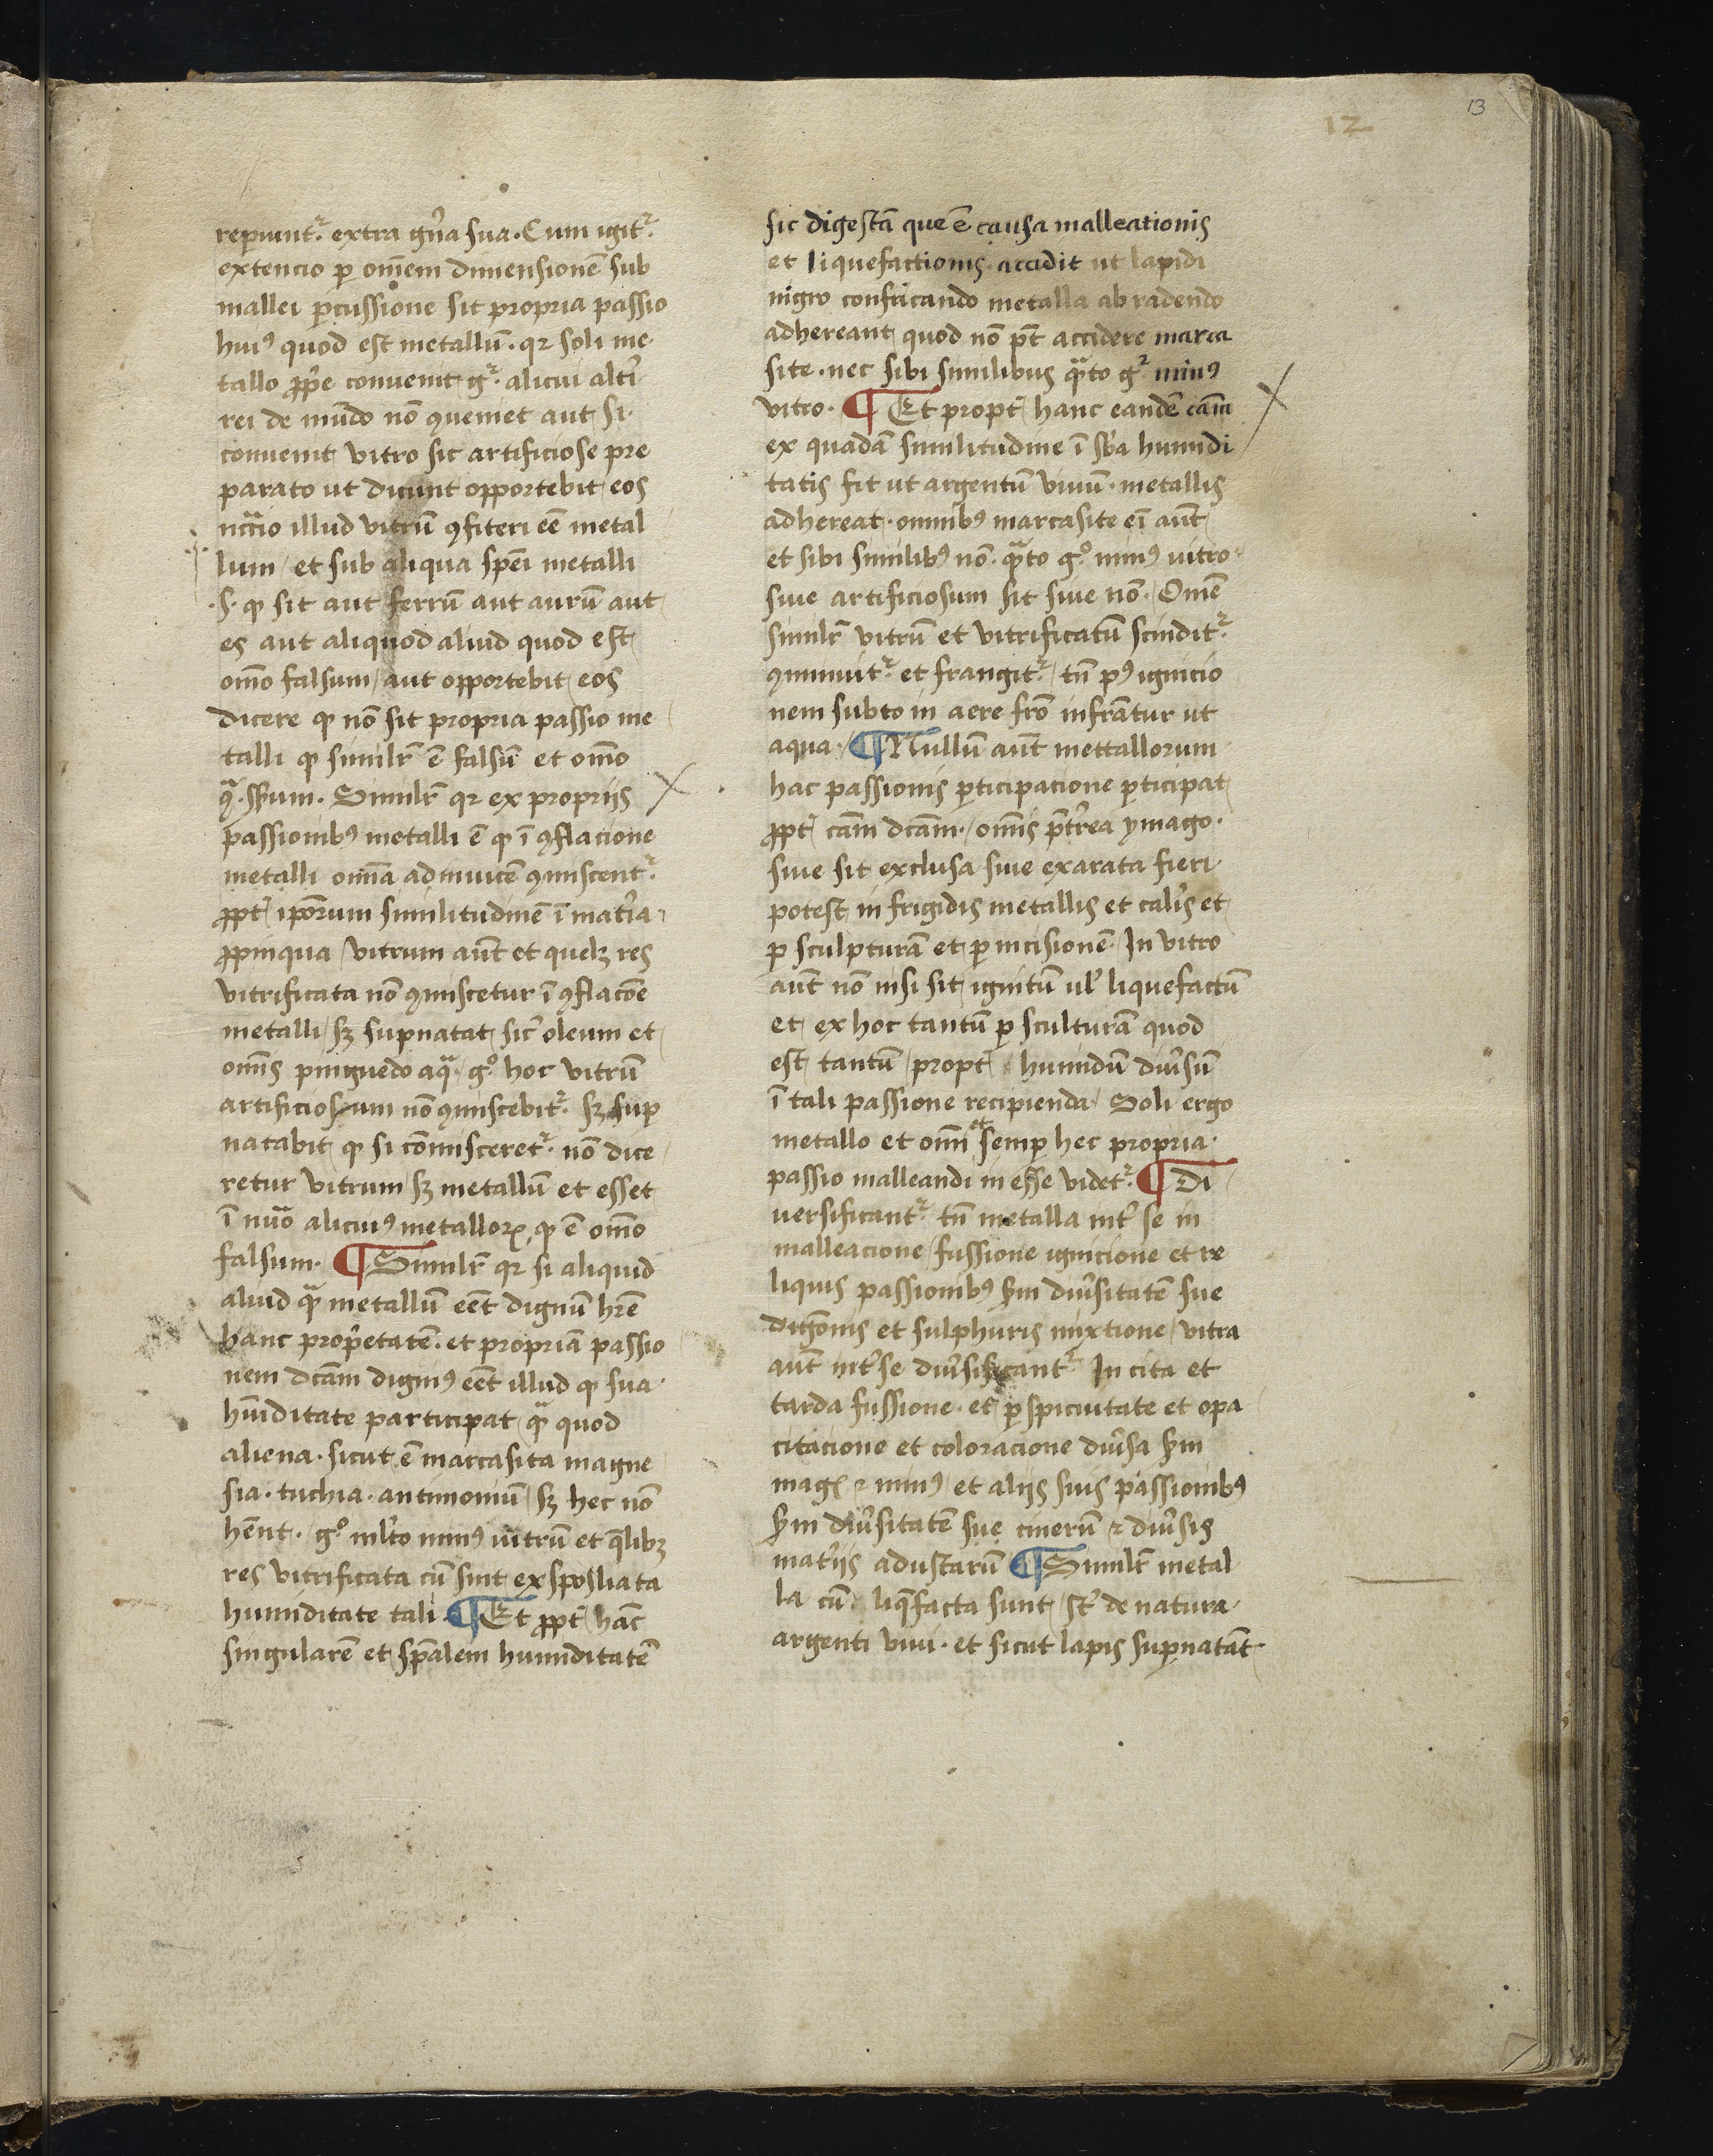 13
12
reperiunt᷑ extra gn̄a sua. Cum igit᷑
extencio ꝑ om̄em dimensionē sub
mallei ꝑcussione sit propria passio
huiꝰ quod est metallū. qꝛ soli me
tallo ꝓp̄e conuenit gͬ. alicui alt̄i
rei de mūdo nō ꝯueniet aut si
conuenit vitro sic artificiose pre
parato ut dicunt opportebit eos
nc̄cio illud vitrū ꝯfiteri eē metal
lum et sub aliqua spēi metalli
.s. ꝙ sit aut ferrū aut aurū aut
es aut aliquod aliud quod est
om̄o falsum aut opportebit eos
dicere ꝙ nō sit propria passio me
talli ꝙ simil̄r ē falsū et om̄o
Simil̄r qꝛ ex proprijs
passionibꝰ metalli ē ꝙ ī ꝯflacione
metalli om̄ia adinuicē ꝯmiscent᷑
ꝓpt̄ ip̄orum similitudinē ī mat̄ia
ꝓpinqua vitrum aūt et quelꝫ res
vitrificata nō ꝯmiscetur ī ꝯflac̄oe
metalli sꝫ suꝑnatat sic̄ oleum et
om̄is pinguedo aqͣ. gͦ. hoc vitrū
artificiosum nō ꝯmiscebit᷑. sꝫ suꝑ
natabit ꝙ si cōmisceret᷑. nō dice
retur vitrum sꝫ metallū et esset
ī nūo alicuiꝰ metalloꝝ, ꝙ ē om̄o
falsum. ¶ Simil̄r qꝛ si aliquid
aliud qͣ metallū eēt dignū hr̄e
hanc prop̄etatē. et propriā passio
nem dc̄am digniꝰ eēt illud ꝙ sua
hūiditate participat qͣ quod
aliena. sicut ē marcasita magne
sia. tuchia. antimoniū sꝫ hec nō
hēnt. gͦ. ml̄to minꝰ uitrū et q̄libꝫ
res vitrificata cū sint exspoliata
humiditate tali. ¶ Et ꝓpt̄ hāc
singularē et sp̄alem humiditatē
sic digestā que ē causa malleationis
et liquefactionis. accidit ut lapidi
nigro confricando metalla abradendo
adhereant quod nō pt̄ accidere marca
site. nec sibi similibus qͣto gͬ minꝰ
vitro. ¶ Et propt̄ hanc eandē cām
ex quadā similitudine ī sb̄a humidi
tatis fit ut argentū viuū. metallis
adhereat. omnibꝰ marcasite eī aūt
et sibi similibꝰ nō. qͣto gͦ. minꝰ uitro
siue artificiosum sit siue nō. Om̄e
simil̄r vitrū et vitrificatū scindit᷑.
ꝯminuit᷑. et frangit᷑. tn̄ pꝰ ignicio
nem subto in aere fr̄o infrātur ut
aqua. ¶ Nullū aūt mettallorum
hac passionis ꝑticipacione ꝑticipat
ꝓpt̄ cām dc̄am. om̄is pt̄rea ymago.
siue sit exclusa siue exarata fieri
potest in frigidis metallis et cal̄is et
ꝑ sculpturā et ꝑ incisionē. In vitro
aūt nō nisi sit ignitū ul̄ liquefactū
et ex hoc tantū ꝑ sculturā quod
est tantū propt̄ humidū diu̅sū
ī tali passione recipienda. Soli ergo
metallo et om̄i et semꝑ hec propria.
passio malleandi in esse videt᷑. ¶ Di
uersificant᷑. tn̄ metalla int̄ se in
malleacione fussione ignicione et re
liquis passionibꝰ s̄m diu̅sitatē sue
digōnis et sulphuris mixtione vitra
aūt int̄ se diu̅sificant᷑ In cita et
tarda fussione. et ꝑspicuitate et opa
citacione et coloracione diu̅sa s̄m
magꝭ ⁊ minꝰ et alijs suis passionibꝰ
s̄m diu̅sitatē sue cinerū ⁊ diu̅sis
mat̄ijs adustarū ¶ Simil̄r metal
la cū liq̄facta sunt st̄ de natura
argenti viui. et sicut lapis suꝑnatāt